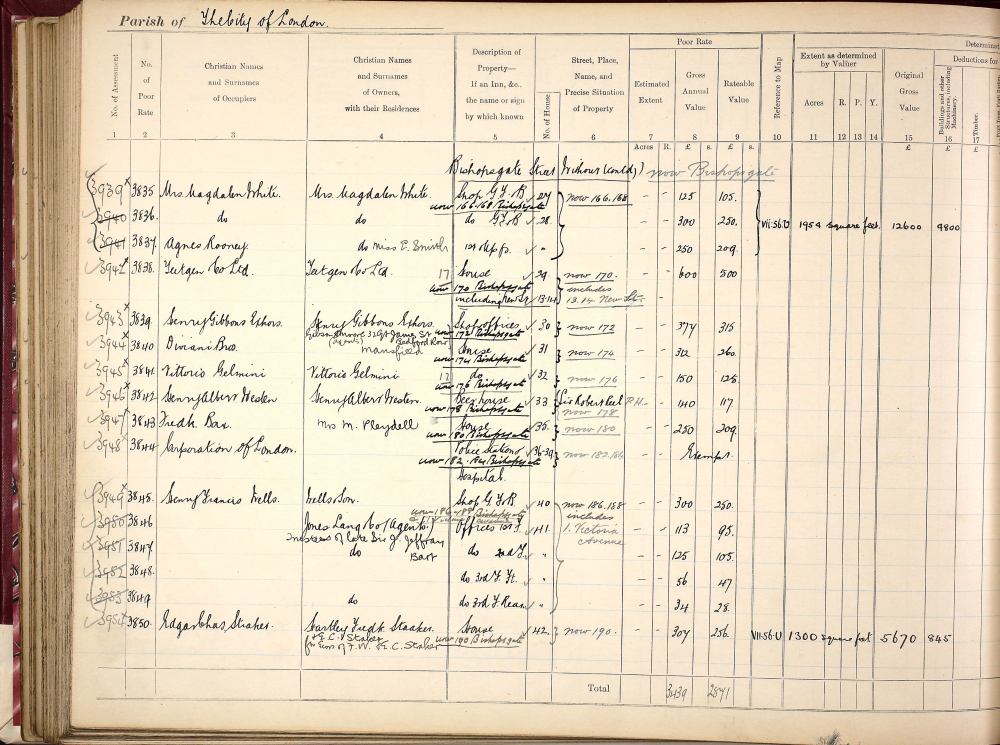 Parish of The City of London.
Determined
Poor Rate
Extent as determined by Valuer
Deductions for
No. of Assessment
No. of Poor Rate
Christian Names and Surnames of Occupiers
Christian Names and Surnames of Owners, with their Residences
Description of Property— If an Inn, &c., the name or sign by which known
No. of House
Street, Place, Name, and Precise Situation of Property
Estimated Extent
Gross Annual Value
Rateable Value
Reference to Map
Acres R. P. Y.
Original Gross Value
Buildings and other Structures, including Machinery.
Timber.
1 2 3 4 5 6 7 8 9 10 11 12 13 14 15 16 17
Acres R. £ s. £ s. £ £ £
Bishopsgate Street Without (contd) now Bishopsgate
3939 3835 Mrs. Magdalen White. Mrs. Magdalen White. Shop G.F. & B 27 now 166.168 - - 125 105.
now 166-168 Bishopsgate
3940 3836. do do do G.F. & B 28. - - 300 250. VII.56.U 1954 square feet. 12600 9800
3941 3837. Agnes Rooney. do Miss E. Smith 1st " - - 250 209.
3942 3838. Teetgen & Co Ltd. Teetgen & Co Ltd. 17 House 29 now 170. - - 600 500
now 170 Bishopsgate includes
including New St 13.14 13.14 New St. -
3943 3839 Henry Gibbons & Sons. Henry Gibbons & Sons. Shop & offices 30 now 172 - - 374 315
32 Gt James St now 172 Bishopsgate
(agents) Bedford Row
3944 3840 Diviani Bros. Mansfield House 31 now 174 - - 312 260.
now 174 Bishopsgate
3945 3841. Vittorio Gelmini Vittorio Gelmini 17 do 32 now 176 - - 150 125.
now 176 Bishopsgate
3946 3842 Henry Albert Westen Henry Albert Westen. Beerhouse 33 Sir Robert Peel P.H. - 140 117
now 178 Bishopsgate now 178
3947 3843 Fredk. Bax. Mrs M. Pleydell House 35. now 180 - - 250 209.
now 180 Bishopsgate
3948 3844 Corporation of London. Police Station & 36-39 now 182.184 - - Exempt.
now 182.184 Bishopsgate
Hospital.
3949 3845. Henry Francis Wells. Wells & Son. Shop G.F. & B 40 now 186.188 - - 300 250.
now 186-188 Bishopsgate includes
3950 3846 Jones Lang & Co (Agents) Offices 1st F. 41. 1. Victoria Avenue - - 113 95.
Trustees of late Sir J. Jaffray Bart
3951 3847 do do 2nd F. " - - 125 105.
3952 3848. do 3rd F. Ft. " - - 56 47
3953 3849 do do 3rd F. Rear " - - 34 28.
3954 3850. Edgar Chas. Straker. Hartley Fredk Straker. House 42. now 190. - - 307 256. VII.56.U 1300 square feet 5670 845
now 190 Bishopsgate
Total 3439 2871